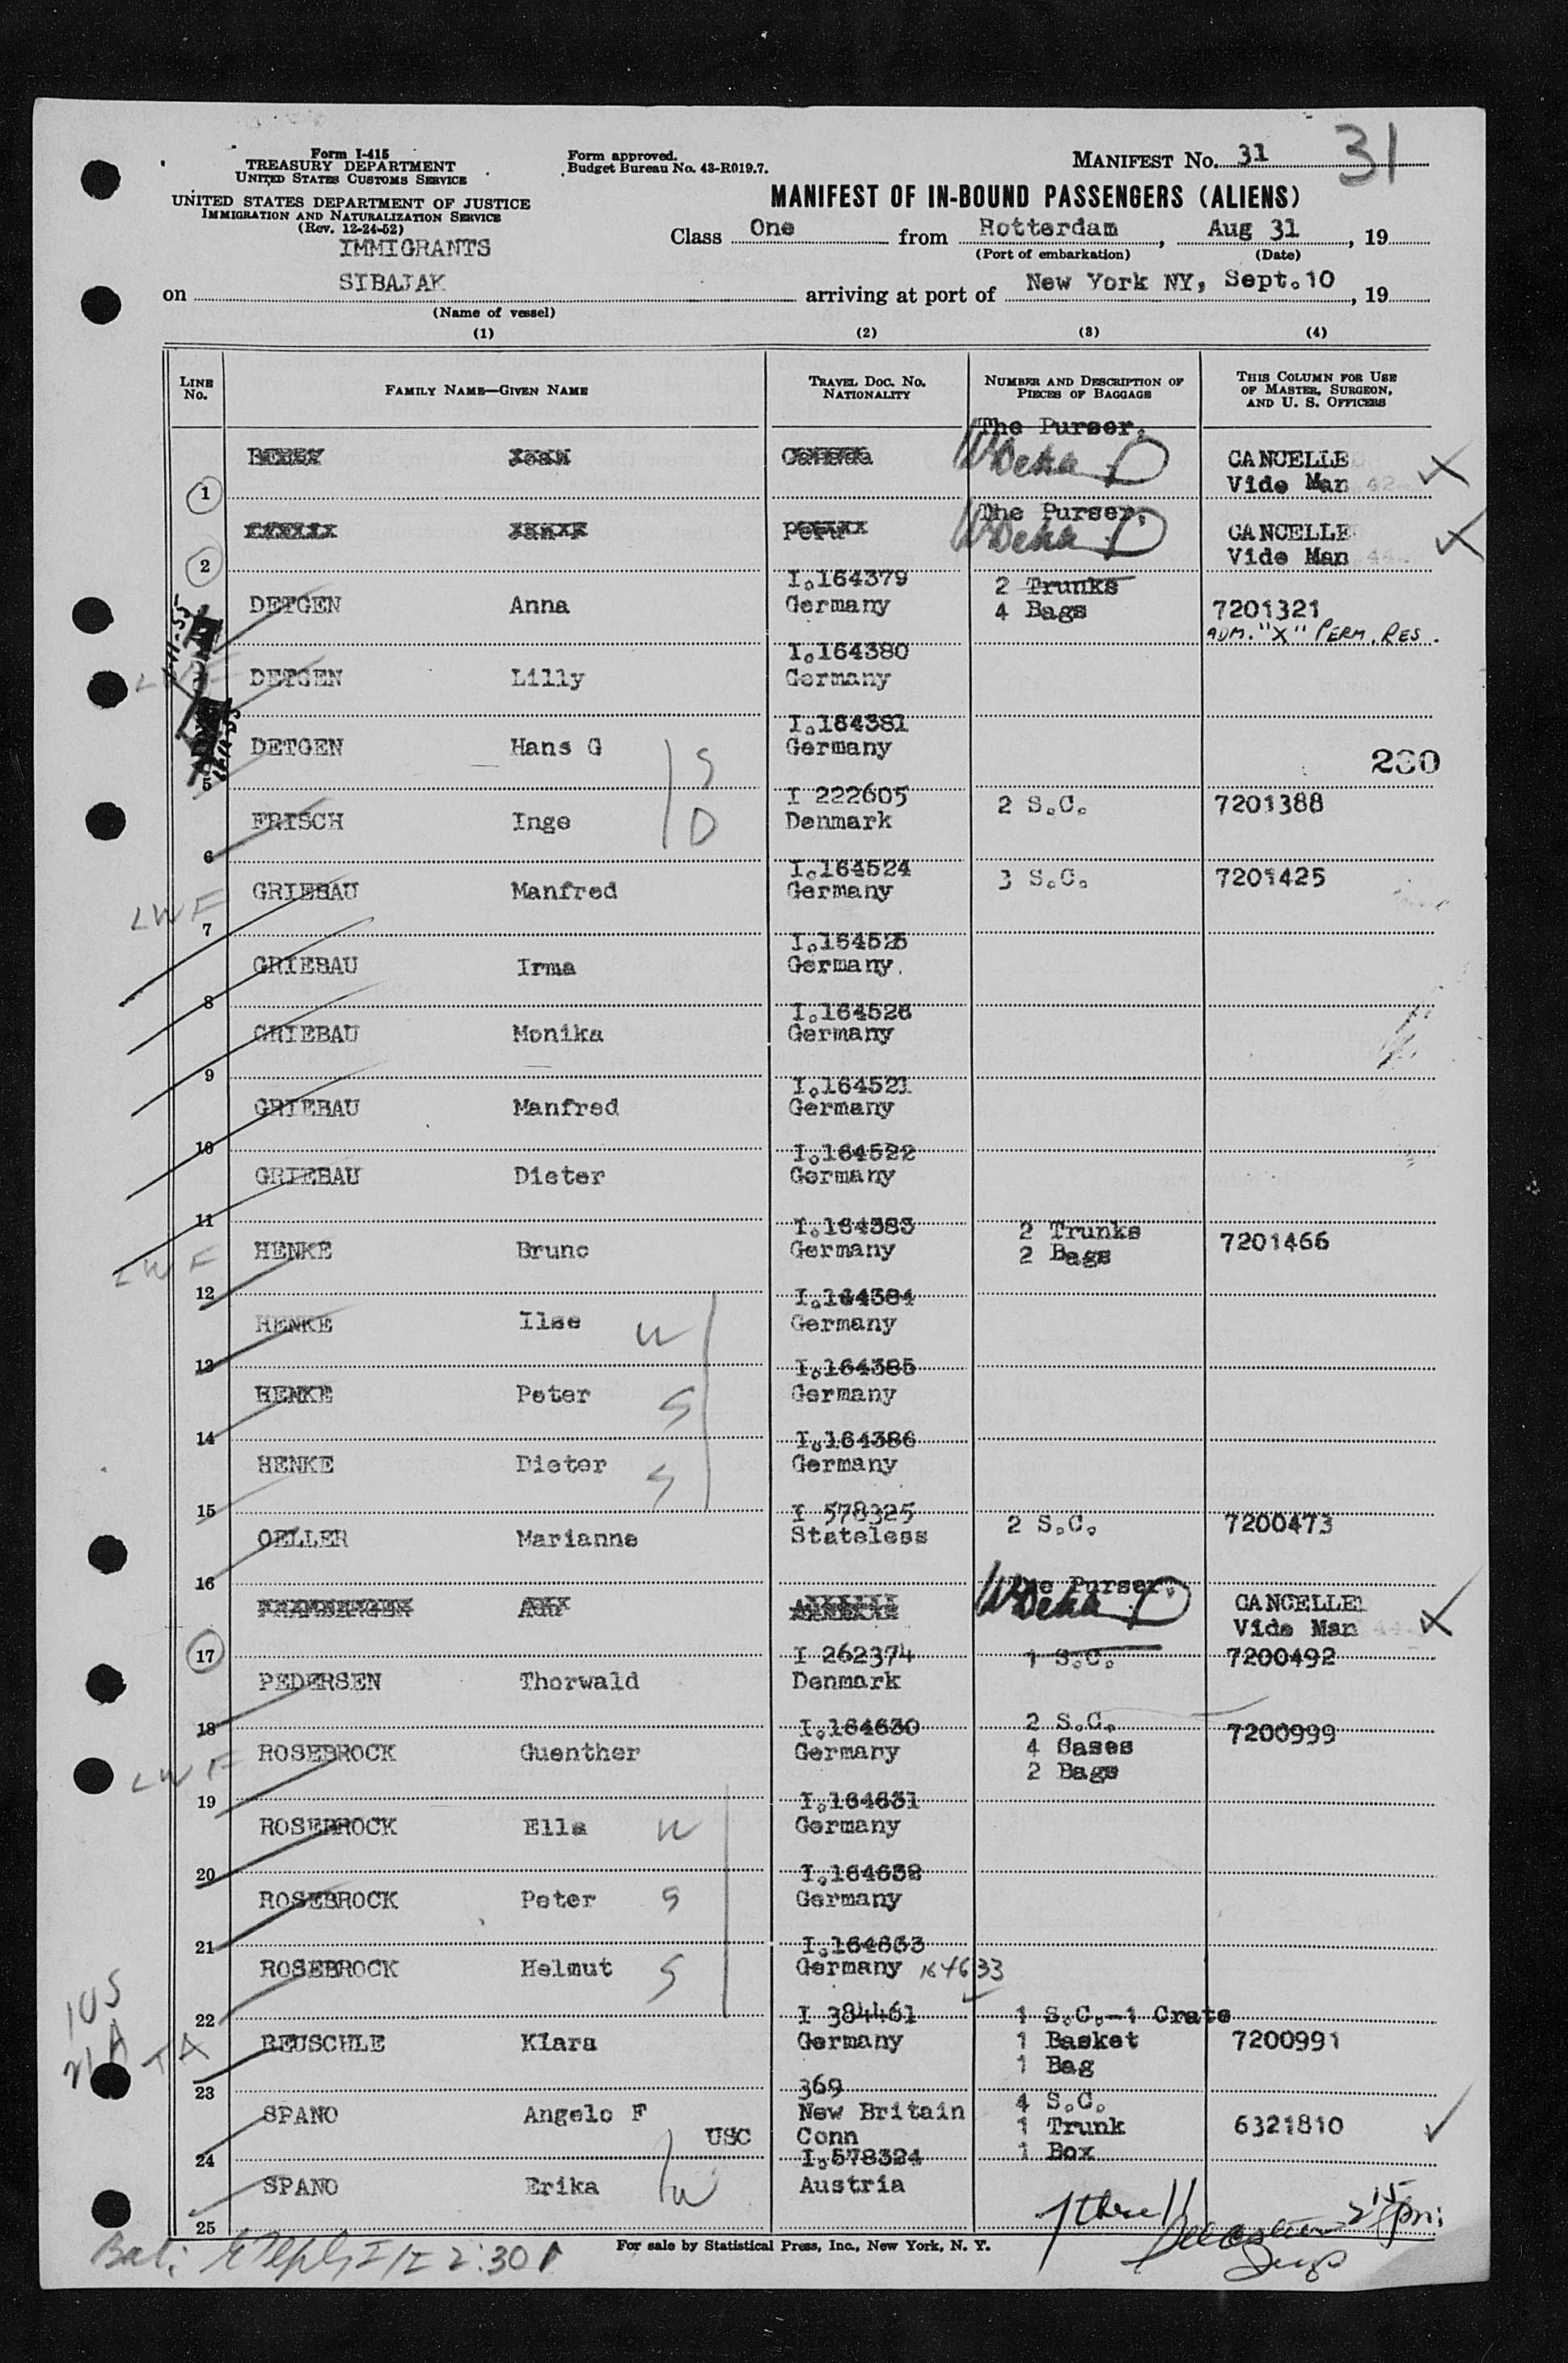 Form I-415
TREASURY DEPARTMENT
UNITED STATES CUSTOMS SERVICE
UNITED STATES DEPARTMENT OF JUSTICE
IMMIGRATION AND NATURALIZATION SERVICE
(Rev. 12-24-52)
Form approved.
Budget Bureau No. 43-R019.7.
MANIFEST No. 31 31
MANIFEST OF IN-BOUND PASSENGERS (ALIENS)
IMMIGRANTS
Class One from Rotterdam, Aug 31, 19
(Port of embarkation) (Date)
on SIBAJAK arriving at port of New York NY, Sept.10, 19
(Name of vessel)
(1) (2) (3) (4)
LINE No. FAMILY NAME—GIVEN NAME TRAVEL DOC. NO. NATIONALITY NUMBER AND DESCRIPTION OF PIECES OF BAGGAGE THIS COLUMN FOR USE OF MASTER, SURGEON, AND U. S. OFFICERS
The Purser,
Canada CANCELLE
1 Vide Man
The Purser,
Peru CANCELLE
2 Vide Man
I.164379 2 Trunks
DETGEN Anna Germany 4 Bags 7201321
ADM. "X" PERM. RES.
I.164380
DETGEN Lilly Germany
I.164381
DETGEN Hans G Germany 230
5 S
I 222605 2 S.C. 7201388
FRISCH Inge D Denmark
6
I.164524 3 S.C. 7201425
LWF GRIEBAU Manfred Germany
7
I.164525
GRIEBAU Irma Germany.
8
I.164526
GRIEBAU Monika Germany
9
I.164521
GRIEBAU Manfred Germany
10
I.164522
GRIEBAU Dieter Germany
11
I.164383 2 Trunks 7201466
LWF HENKE Bruno Germany 2 Bags
12
I.164384
HENKE Ilse W Germany
13
I.164385
HENKE Peter S Germany
14
I.164386
HENKE Dieter S Germany
15
I 578325 2 S.C. 7200473
OELLER Marianne Stateless
16
The Purser,
CANCELLE
Vide Man
17
I 262374 1 S.C. 7200492
PEDERSEN Thorwald Denmark
18
I.164630 2 S.C. 7200999
LWF ROSEBROCK Guenther Germany 4 Sases
2 Bags
19
I.164631
ROSEBROCK Ella W Germany
20
I.164632
ROSEBROCK Peter S Germany
21
I.164633
ROSEBROCK Helmut S Germany 164633
22
I 384461 1 S.C.-1 Crate
REUSCHLE Klara Germany 1 Basket 7200991
1 Bag
23
369 4 S.C.
SPANO Angelo F New Britain 1 Trunk 6321810
USC Conn 1 Box
24
I.578324
SPANO Erika W Austria
25
10S
21A
TA
1 thru 11
2 15 pm
2:30 P
For sale by Statistical Press, Inc., New York, N. Y.